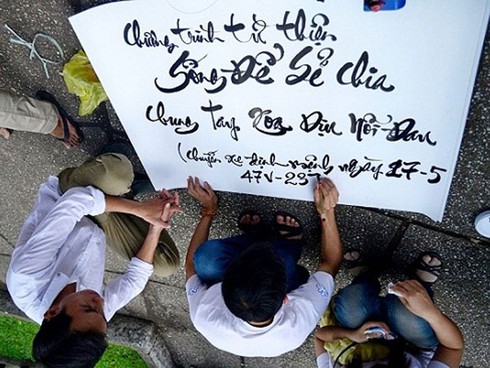 Chương trình từ thiện
Sống Để Sẻ Chia
Chung Tay Xoa Dịu Nỗi Đau
(chuyến xe định mệnh ngày 17-5
47V-237